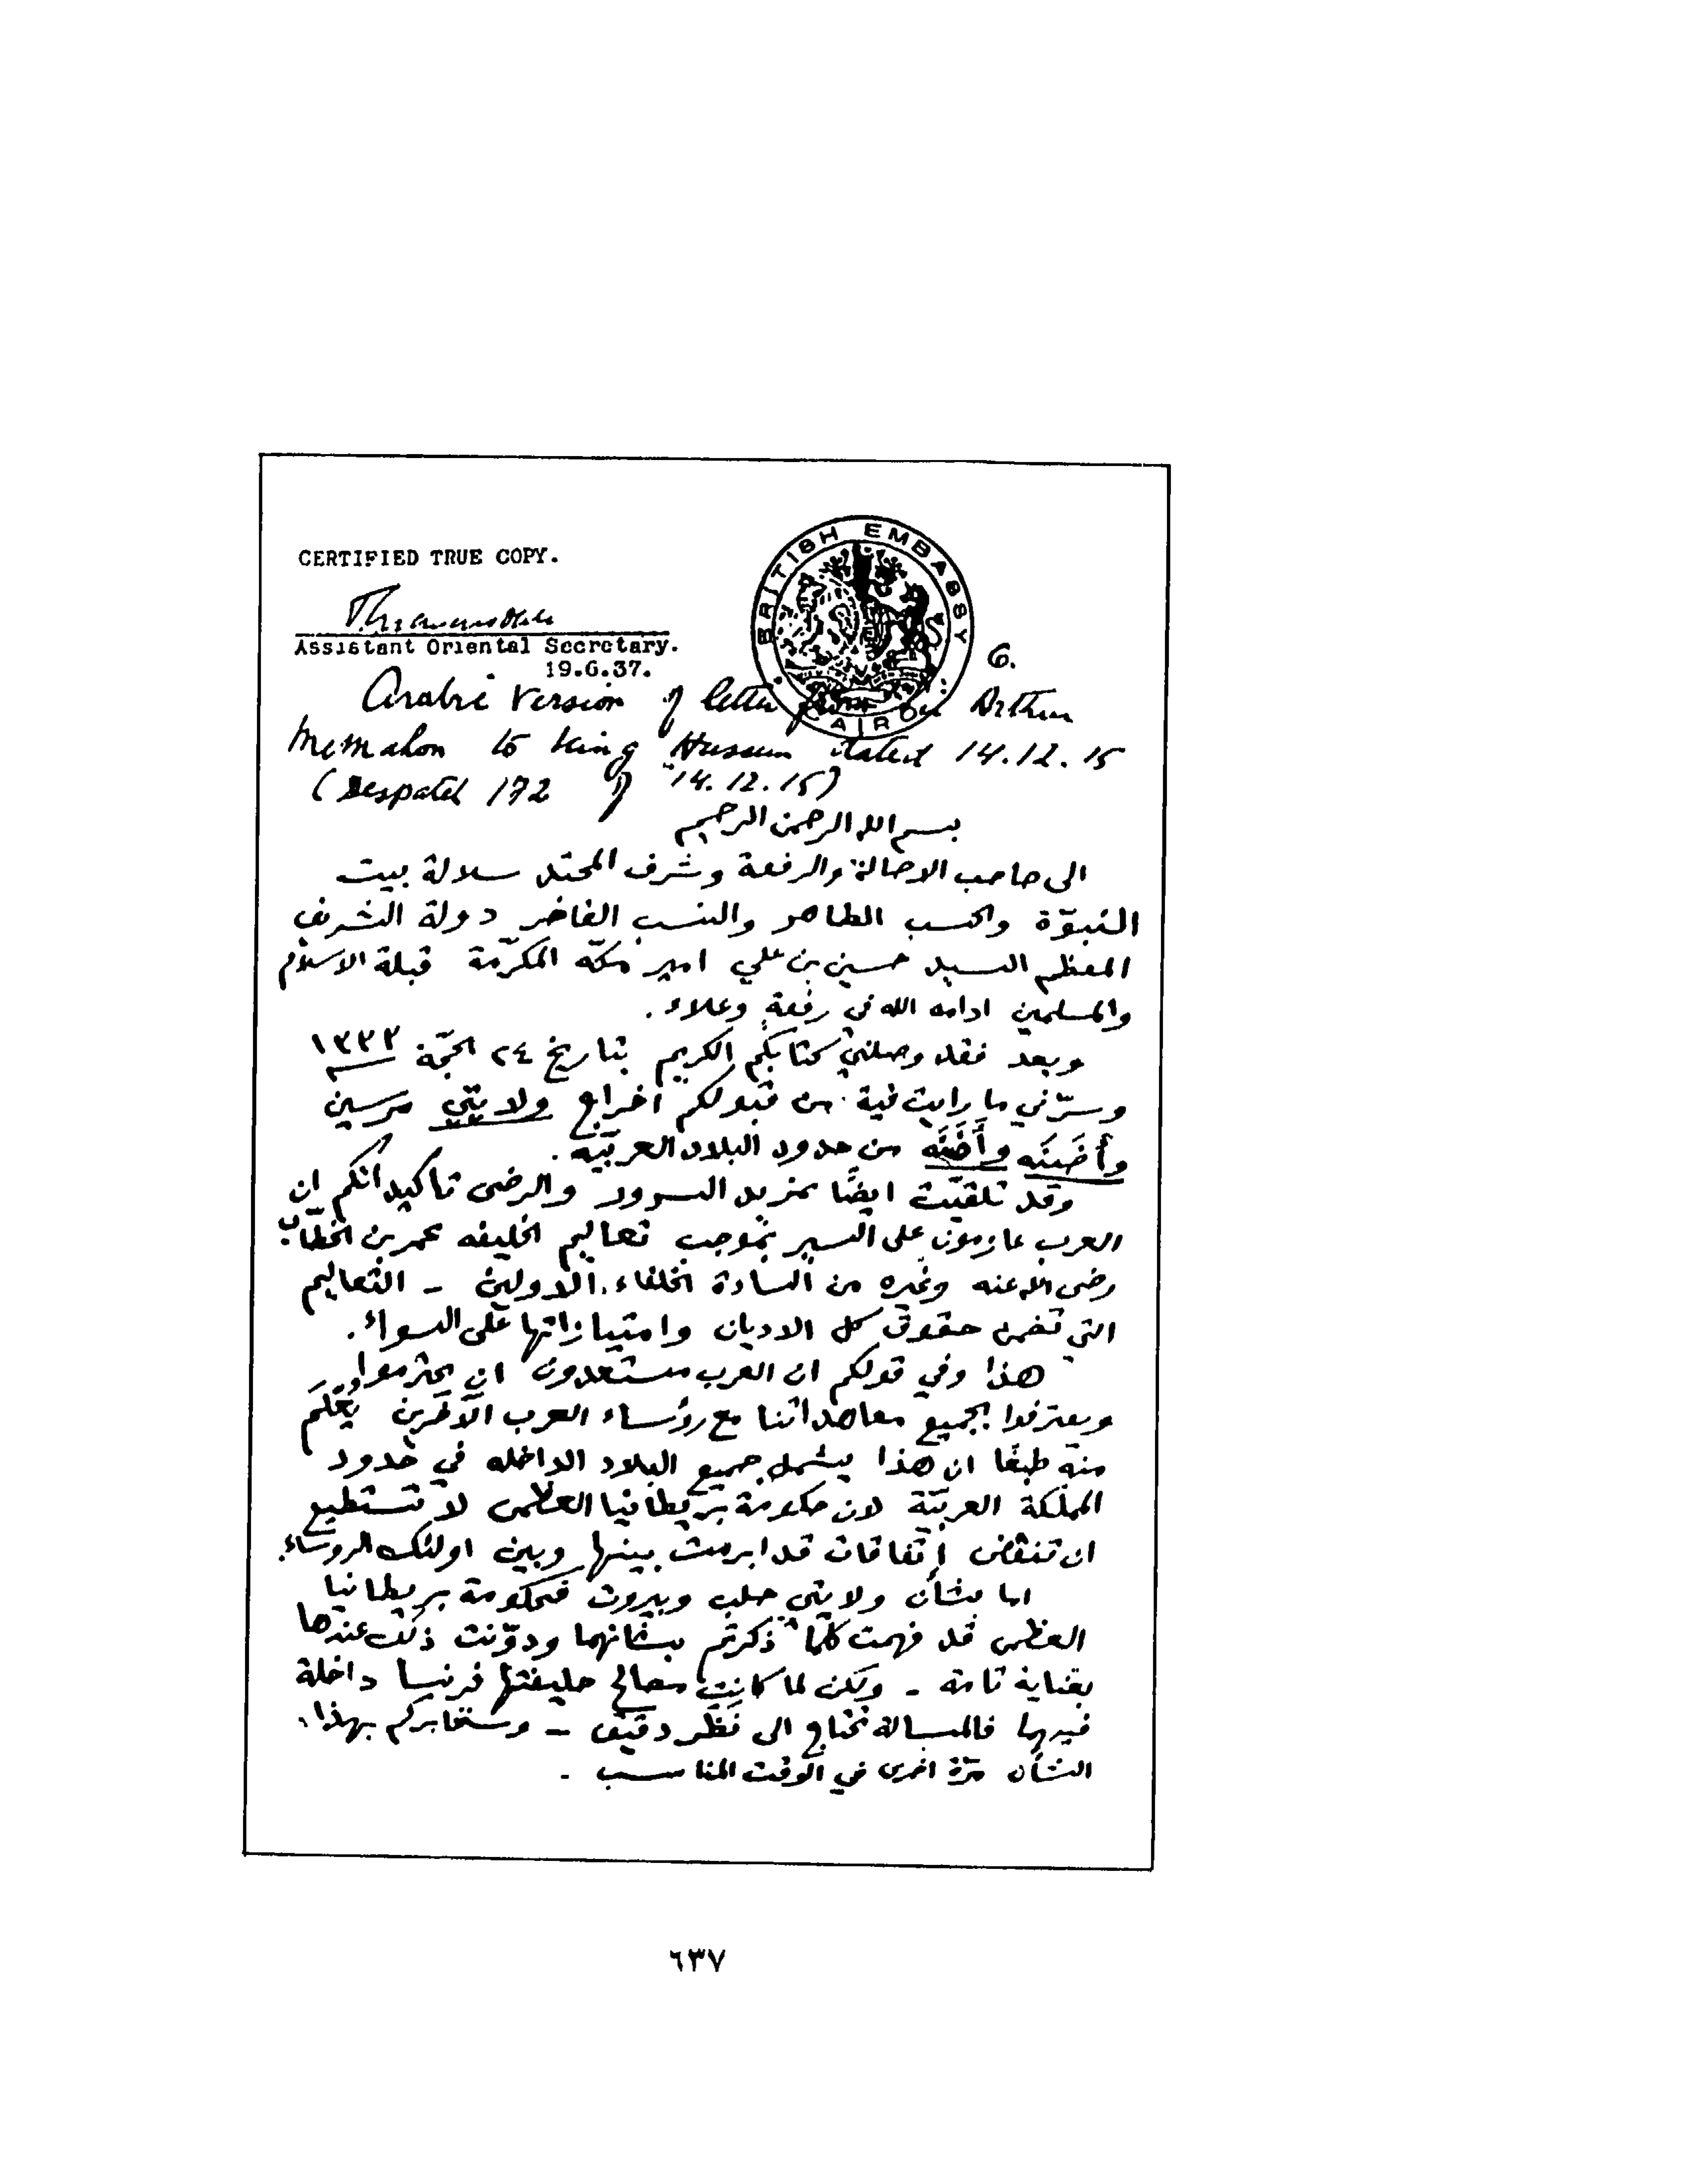 CERTIFIED TRUE COPY.
Assistant Oriental Secretary.
19.6.37.
BRITISH EMBASSY
CAIRO
6.
Arabic version of letter from Sir Arthur
McMahon to King Hussein dated 14.12.15
(Despatch 172 of 14.12.15)
بسم الله الرحمن الرحيم
الى صاحب الاصالة والرفعة وشرف المحتد سلالة بيت
النبوّة والحسب الطاهر والنسب الفاخر دولة الشريف
المعظم السيد حسين بن علي امير مكّة المكرّمة قبلة الاسلام
والمسلمين ادامه الله في رفعة وعلاء.
وبعد فقد وصلني كتابكم الكريم بتاريخ ٢٤ الحجّة ١٣٣٣
وسرّني ما رايت فيه من قبولكم اخراج ولايتي مرسين
وأضَنَه من حدود البلاد العربيّة.
وقد تلقيّت ايضًا بمزيد السرور والرضى تاكيداتكم ان
العرب عازمون على السير بموجب تعاليم الخليفه عمر بن الخطّاب
رضى الله عنه وغيره من السادة الخلفاء الاولين - التعاليم
التي تضمن حقوق كل الاديان وامتيازاتها على السواء.
هذا وفي قولكم ان العرب مستعدون ان يحترموا
ويعترفوا بجميع معاهداتنا مع رؤساء العرب الآخرين يُعْلَم
منه طبعًا ان هذا يشمل جميع البلاد الداخله في حدود
المملكة العربيّة لان حكومة بريطانيا العظمى لا تستطيع
ان تنقض إتفاقات قد ابرمت بينها وبين اولئك الروساء.
اما بشأن ولايتي حلب وبيروت فحكومة بريطانيا
العظمى قد فهمت كلما ذكرتم بشانهما ودوّنت ذلك عندها
بعناية تامة - ولكن لما كانت مصالح حليفتها فرنسا داخلة
فيهما فالمسالة تحتاج الى نظر دقيق - وسنخابركم بهذا
الشأن مرّة اخرى في الوقت المناسب -
٦٣٧